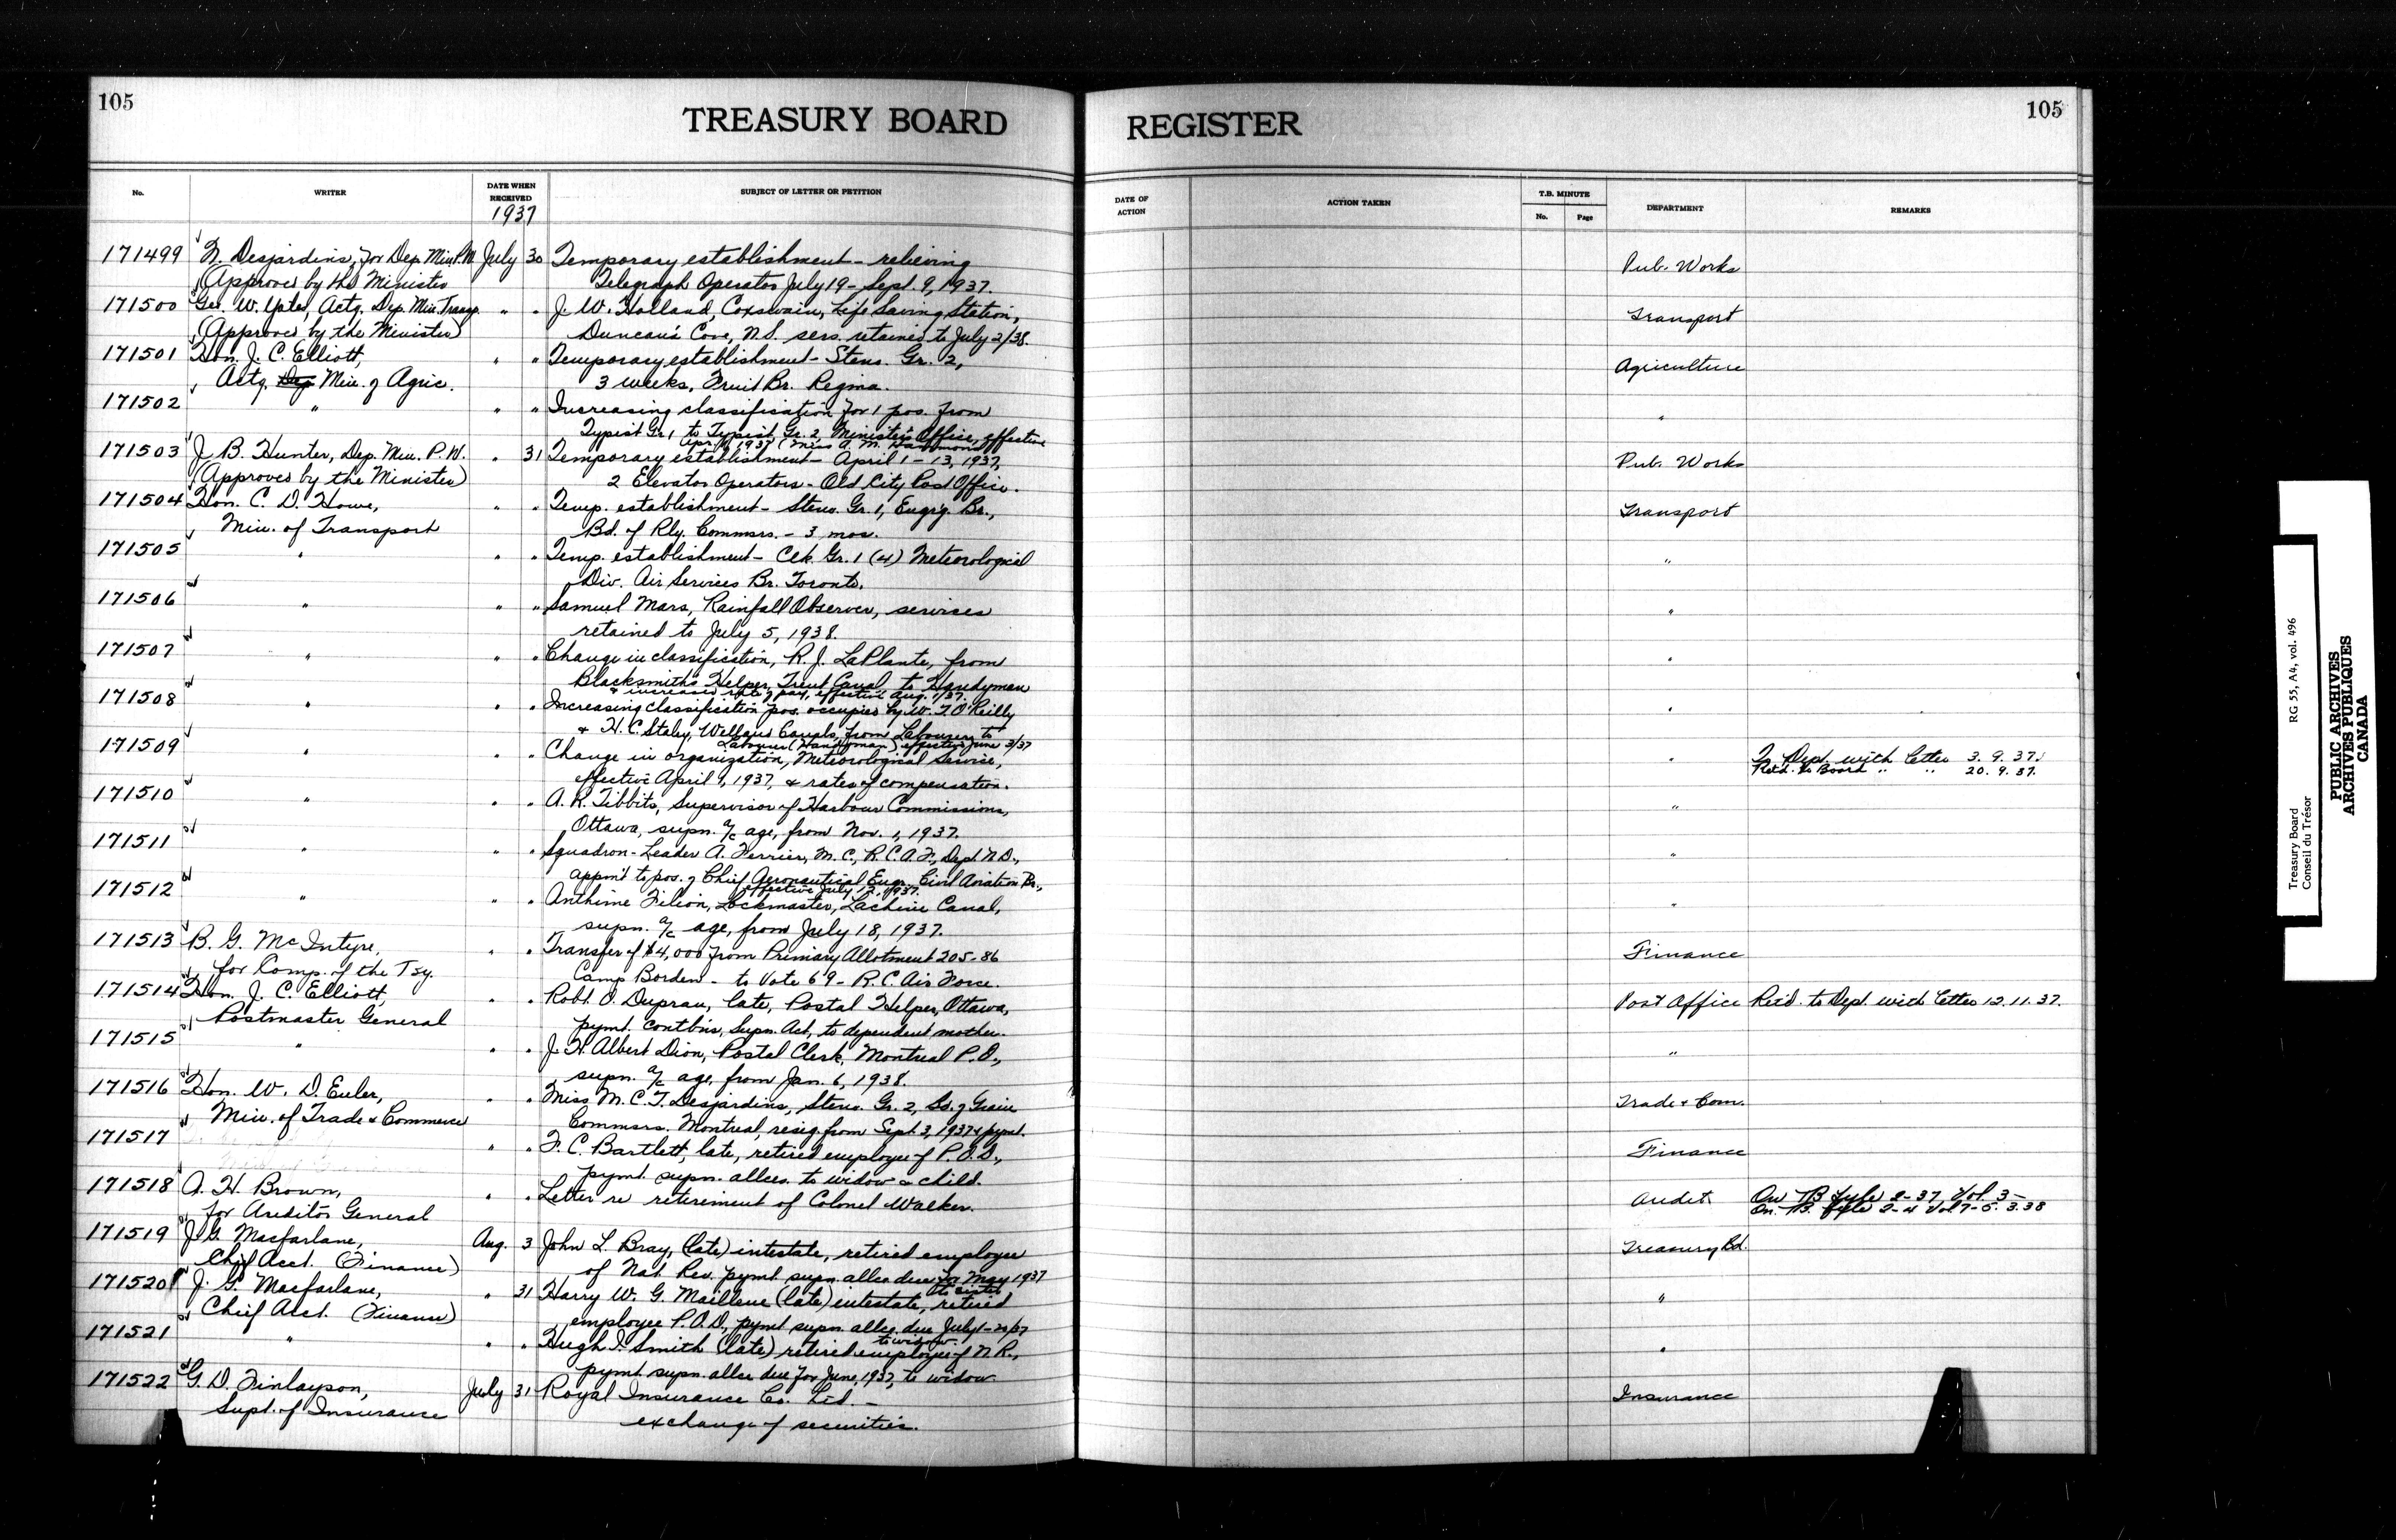 105
TREASURY BOARD REGISTER
105
No. WRITER DATE WHEN RECEIVED SUBJECT OF LETTER OR PETITION DATE OF ACTION ACTION TAKEN T.B. MINUTE No. Page DEPARTMENT REMARKS
1937
171499 N. Desjardins, for Dep. Min. P.W. July 30 Temporary establishment - relieving Pub. Works
(Approved by the Minister Telegraph Operator July 19 - Sept. 9, 1937.
171500 Geo. W. Yates, Actg. Dep. Min. Transp. " " J. W. Holland, Coxswain, Life Saving Station, Transport
(Approved by the Minister) Duncan's Cove, N.S. servs. retained to July 2/38.
171501 Hon. J. C. Elliott, " " Temporary establishment - Steno. Gr. 2, Agriculture
Actg. Dep. Min. of Agric. 3 weeks, Fruit Br. Regina.
171502 " " " Increasing classification for 1 pos. from "
Typist Gr. 1 to Typist Gr. 2, Minister's Office, effective
Apr. 1, 1937 (Miss A. M. Hammond)
171503 J. B. Hunter, Dep. Min. P.W. " 31 Temporary establishment - April 1 - 13, 1937, Pub. Works
(Approved by the Minister) 2 Elevator Operators - Old City Post Office.
171504 Hon. C. D. Howe, " " Temp. establishment - Steno. Gr. 1, Engrg. Br., Transport
Min. of Transport Bd. of Rly. Commsrs. - 3 mos.
171505 " " " Temp. establishment - Clk. Gr. 1 (4) Meteorological "
Div. Air Services Br. Toronto.
171506 " " " Samuel Mars, Rainfall Observer, services "
retained to July 5, 1938.
171507 " " " Change in classification, R. J. LaPlante, from "
Blacksmith's Helper, Trent Canal to Handyman
& increased rate of pay, effective Aug. 1/37.
171508 " " " Increasing classification pos. occupied by W. T. O'Reilly "
& H. C. Staley, Welland Canals, from Labourers to
Labourer (Handyman) effective June 3/37
171509 " " " Change in organization, Meteorological Service, " To Dept. with letter 3. 9. 37.
effective April 1, 1937, & rates of compensation. Ret'd. to Board " " 20. 9. 37.
171510 " " " A. R. Tibbits, Supervisor of Harbour Commissions, "
Ottawa, supn. a/c age, from Nov. 1, 1937.
171511 " " " Squadron-Leader A. Ferrier, M.C., R.C.A.F., Dept. N.D., "
appm't to pos. of Chief Aeronautical Engr. Civil Aviation Br.,
effective July 12, 1937.
171512 " " " Anthime Filion, Lockmaster, Lachine Canal, "
supn. a/c age, from July 18, 1937.
171513 B. G. McIntyre, " " Transfer of $4,000 from Primary Allotment 205-86 Finance
for Comp. of the Tsy. Camp Borden - to Vote 69 - R.C. Air Force.
171514 Hon. J. C. Elliott, " " Robt. O. Duprau, late, Postal Helper, Ottawa, Post Office Ret'd. to Dept. with letter 12.11.37.
Postmaster General pymt. contbns, Supn. Act, to dependent mother.
171515 " " " J. H. Albert Dion, Postal Clerk, Montreal P.O., "
supn. a/c age, from Jan. 6, 1938.
171516 Hon. W. D. Euler, " " Miss M. C. T. Desjardins, Steno. Gr. 2, Bd. of Grain Trade & Com.
Min. of Trade & Commerce Commsrs. Montreal, resig. from Sept. 3, 1937 & pymt.
171517 " " F. C. Bartlett, late, retired employee of P.O.D., Finance
pymt. supn. allces. to widow & child.
171518 A. H. Brown, " " Letter re retirement of Colonel Walker. Audit On TB fyle 2-37, Vol. 3 -
for Auditor General On T.B. fyle 2-4 Vol 7-5. 3.38
171519 J. G. Macfarlane, Aug. 3 John L. Bray, (late) intestate, retired employee Treasury Bd.
Chief Acct. (Finance) of Nat. Rev. pymt. supn. allce due for May 1937
to sister
171520 J. G. Macfarlane, " 31 Harry W. G. (late) intestate, retired "
Chief Acct. (Finance) employee P.O.D., pymt supn. allce. due July 1-20/37
to widow.
171521 " " " Hugh I. Smith (late) retired employee of N.R., "
pymt. supn. allce due for June, 1937, to widow
171522 G. D. Finlayson, July 31 Royal Insurance Co. Ltd. - Insurance
Supt. of Insurance exchange of securities.
Treasury Board RG 55, A4, vol. 496
Conseil du Trésor
PUBLIC ARCHIVES
ARCHIVES PUBLIQUES
CANADA